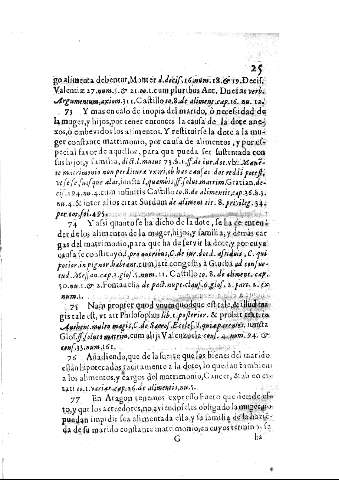 25
go alimenta debentur, Monter d. decis. 16. num. 18. & 19. Decis.
Valentiæ 27. num. 5. & 21. to. 1. cum pluribus Ant. Dueñas verb.
Argumentum, axiom. 311. Castillo to. 8. de aliment. cap. 16. nu. 12.
73 Y mas en caso de inopia del marido, ò necesidad de
la muger, y hijos, por tener entonces la causa de la dote ane-
xos, ò embevidos los alimentos. Y restituirse la dote a la mu-
ger constante matrimonio, por causa de alimentos, y por es-
pecial favor de aquellos, para que pueda ser sustentada con
sus hijos, y familia, dict. l. mutus 73. §. 1. ff. de iur. dot. ibi: Manē-
te matrimonio non perditura vxori, ob has causas dos reddi potest,
vt sese suosque alat, iuncta l. quamvis ff. solut. matrim. Gratian. de-
cis. 194. nu. 4. cum insinitis Castillo to. 8. de alimentis, cap. 36. §. 3.
nu. 4. & inter alios citat Surdum de aliment. tit. 8. privileg. 34.
per tot. fol. 495.
74 Y assi quanto se ha dicho de la dote, se ha de enten-
der de los alimentos de la muger, hijos, y familia, y demàs car-
gas del matrimonio, para que ha de servir la dote, y por cuya
causa se constituyò, l. pro oneribus, C. de iur. dot. l. assiduis, C. qui
potior. in pignor. habeant. cum, iuste congestis, à Guzba ad consue-
tud. Messan. cap. 1. glos. 5. num. 11. Castillo to. 8. de aliment. cap.
30. nu. 1. & 2. Fontanella de pact. nupt. claus. 6. glos. 2. part. 2. ex
num. 1.
75 Nam propter quod vnumquodque est tale, & illud ma-
gis tale est, vt ait Philosophus lib. 1. posterior. & probat text. in
Authent. multo magis, C. de Sacros. Eccles. l. qua parentes, iuncta
Glos. ff. solut. matrim. cum aliis Valenzuela cons. 4. num. 94. &
cons. 35. num. 161.
76 Añadiendo, que de la suerte que los bienes del marido
están hipotecados tacitamente a la dote, lo quedan tambien
a los alimentos, y cargos del matrimonio, Cancer, & ab eo ci-
tati to. 1. variar. cap. 26. de alimentis, nu. 5.
77 En Aragon tenemos expresso Fuero que decide es-
to, y que los acreedores, no aviendose obligado la muger, no
puedan impedir sea alimentada ella, y su familia de la hazie-
da de su marido constante matrimonio, en cuyos terminos se
G ha